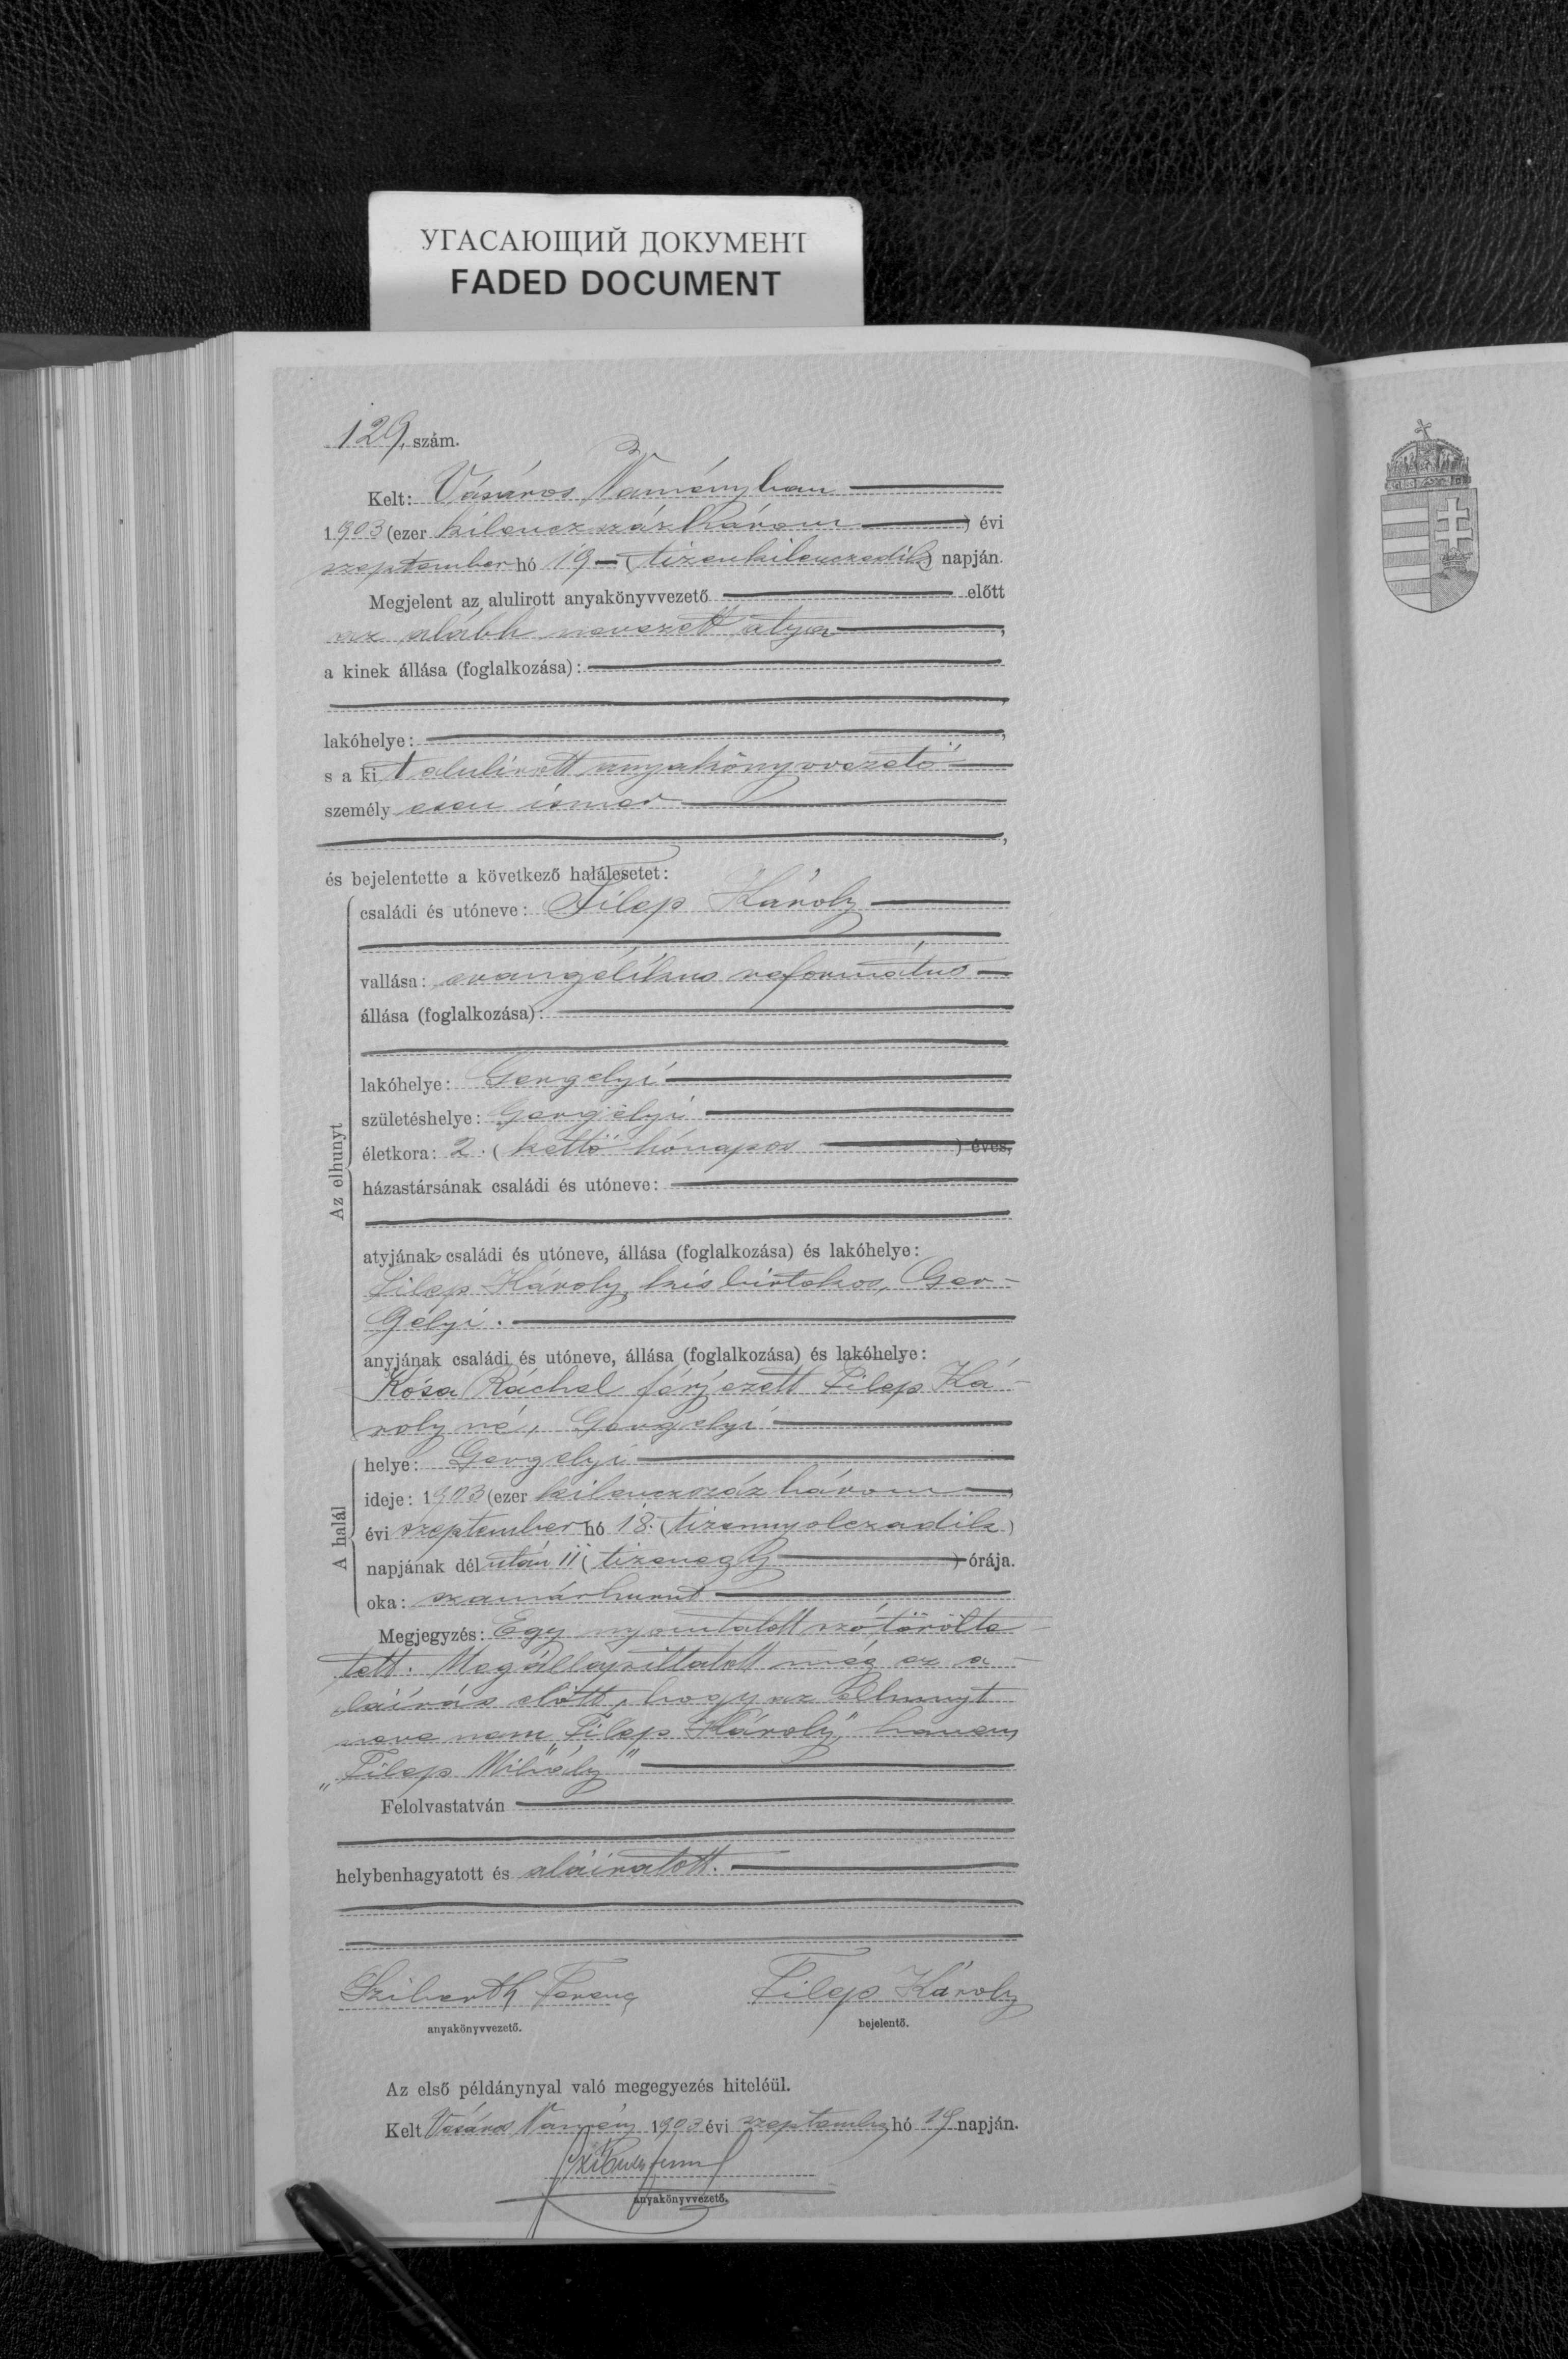 УГАСАЮЩИЙ ДОКУМЕНТ
FADED DOCUMENT
129. szám.
Kelt: Vásáros Naményban
1903 (ezer kilenczszázhárom) évi
szeptember hó 19 (tizenkilenczedik) napján.
Megjelent az alulirott anyakönyvvezető előtt
az alább nevezett atya,
a kinek állása (foglalkozása):
lakóhelye:
s a kit alulirott anyakönyvvezető
személyesen ismer
és bejelentette a következő halálesetet:
Az elhunyt
családi és utóneve: Filep Károly
vallása: evangélikus református
állása (foglalkozása):
lakóhelye: Gergelyi
születéshelye: Gergelyi
életkora: 2. (kettő hónapos) éves,
házastársának családi és utóneve:
atyjának családi és utóneve, állása (foglalkozása) és lakóhelye:
Filep Károly, kisbirtokos, Ger-
gelyi.
anyjának családi és utóneve, állása (foglalkozása) és lakóhelye:
Kósa Ráchel férjezett Filep Ká-
rolyné, Gergelyi
A halál
helye: Gergelyi
ideje: 1903 (ezer kilenczszáz három)
évi szeptember hó 18. (tizennyolczadik)
napjának dél után 11 (tizenegy) órája.
oka: szamárhurut
Megjegyzés: Egy nyomtatott szó törölte-
tett. Megállapíttatott még az a-
láírás előtt, hogy az elhunyt
neve nem „Filep Károly" hanem
„Filep Mihály"
Felolvastatván
helybenhagyatott és aláiratott.
Sziberth Ferencz Filep Károly
anyakönyvvezető. bejelentő.
Az első példánynyal való megegyezés hiteléül.
Kelt Vásáros Namény 1903 évi szeptember hó 19 napján.
anyakönyvvezető.